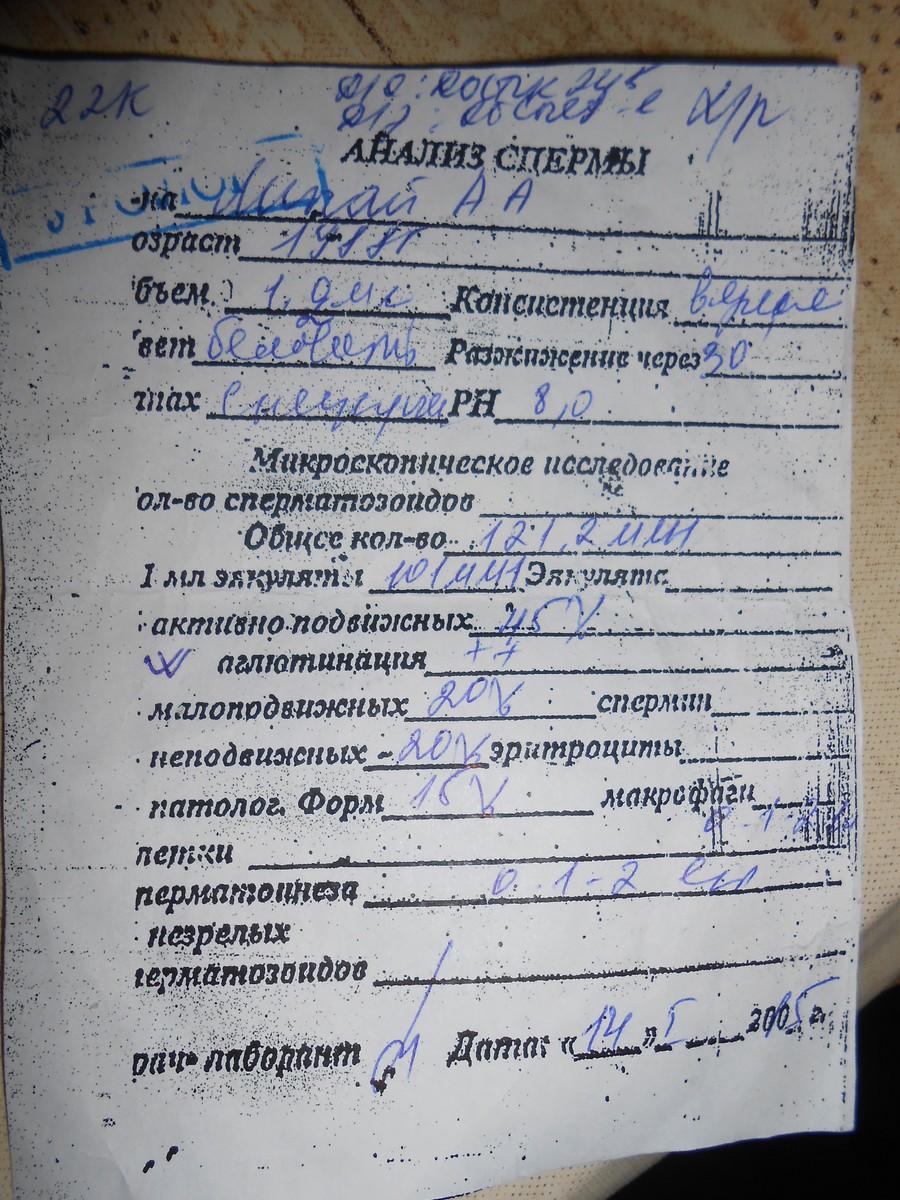 22К
АНАЛИЗ СПЕРМЫ
-на А А
озраст
бъем. 1, мл Консистенция вязкая
вет беловат Разжижение через 30
пах РН 8,0
Микроскопическое исследование
ол-во сперматозоидов
Общее кол-во 121,2 млн
1 мл эякуляты 101 млн Эякулята
активно подвижных 45%
аглютинация ++
малоподвижных 20% спермин
неподвижных - 20% эритроциты
патолог. Форм 15% макрофаги
летки
перматогнеза 0-1-2
незрелых
перматозоидов
рач- лаборант Дата: «14» I 2015 г.